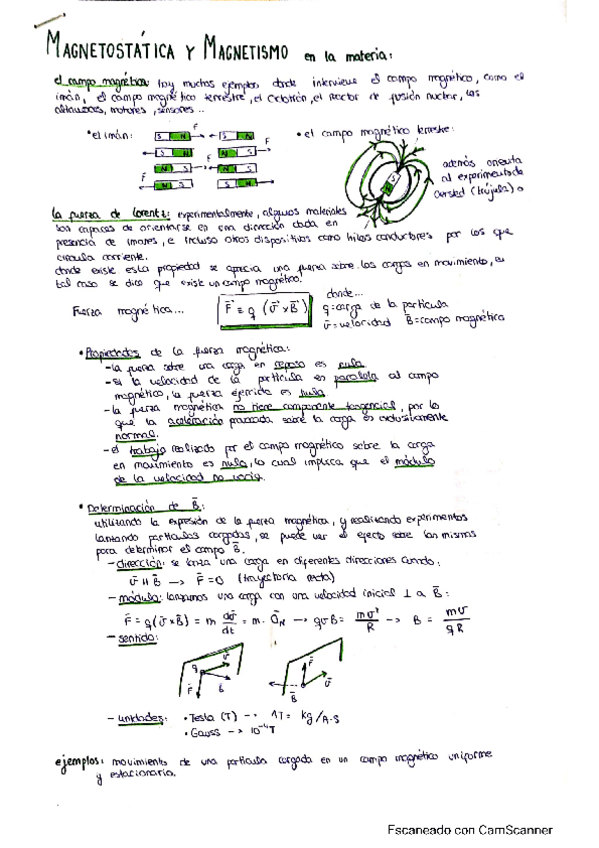 MAGNETOSTÁTICA Y MAGNETISMO en la materia:
el campo magnético: hay muchos ejemplos donde interviene el campo magnético, como el
imán, el campo magnético terrestre, el ciclotrón, el reactor de fusión nuclear, los
altavoces, motores, sensores...
• el imán:
• el campo magnético terrestre:
F F
S N S N
S N N S F
N S S N F
N S N S
S
N
además orienta
al experimento de
Oersted (brújula) o
La fuerza de Lorentz: experimentalmente, algunos materiales
son capaces de orientarse en una dirección dada en
presencia de imanes, e incluso otros dispositivos como hilos conductores por los que
circula corriente.
donde existe esta propiedad se aprecia una fuerza sobre las cargas en movimiento, en
tal caso se dice que existe un campo magnético.
Fuerza magnética... F̄ = q (v̄ x B̄)
donde...
q = carga de la partícula
v̄ = velocidad B̄ = campo magnético
• Propiedades de la fuerza magnética:
- la fuerza sobre una carga en reposo es nula.
- si la velocidad de la partícula es paralela al campo
magnético, la fuerza ejercida es nula.
- la fuerza magnética no tiene componente tangencial, por lo
que la aceleración provocada sobre la carga es exclusivamente
normal.
- el trabajo realizado por el campo magnético sobre la carga
en movimiento es nulo, lo cual implica que el módulo
de la velocidad no varía.
• Determinación de B̄:
utilizando la expresión de la fuerza magnética, y realizando experimentos
lanzando partículas cargadas, se puede ver el efecto sobre las mismas
para determinar el campo B̄.
- dirección: se lanza una carga en diferentes direcciones cuando:
v̄ || B̄ → F̄ = 0 (trayectoria recta)
- módulo: lanzamos una carga con una velocidad inicial ⊥ a B̄:
F̄ = q(v̄ x B̄) = m dv̄/dt = m · ā_N → qvB = mv²/R → B = mv/qR
- sentido:
q v̄ F̄ B̄
F̄ v̄ B̄
- unidades: • Tesla (T) → 1T = kg/A·S
• Gauss → 10⁻⁴T
ejemplos: movimiento de una partícula cargada en un campo magnético uniforme
y estacionario.
Escaneado con CamScanner